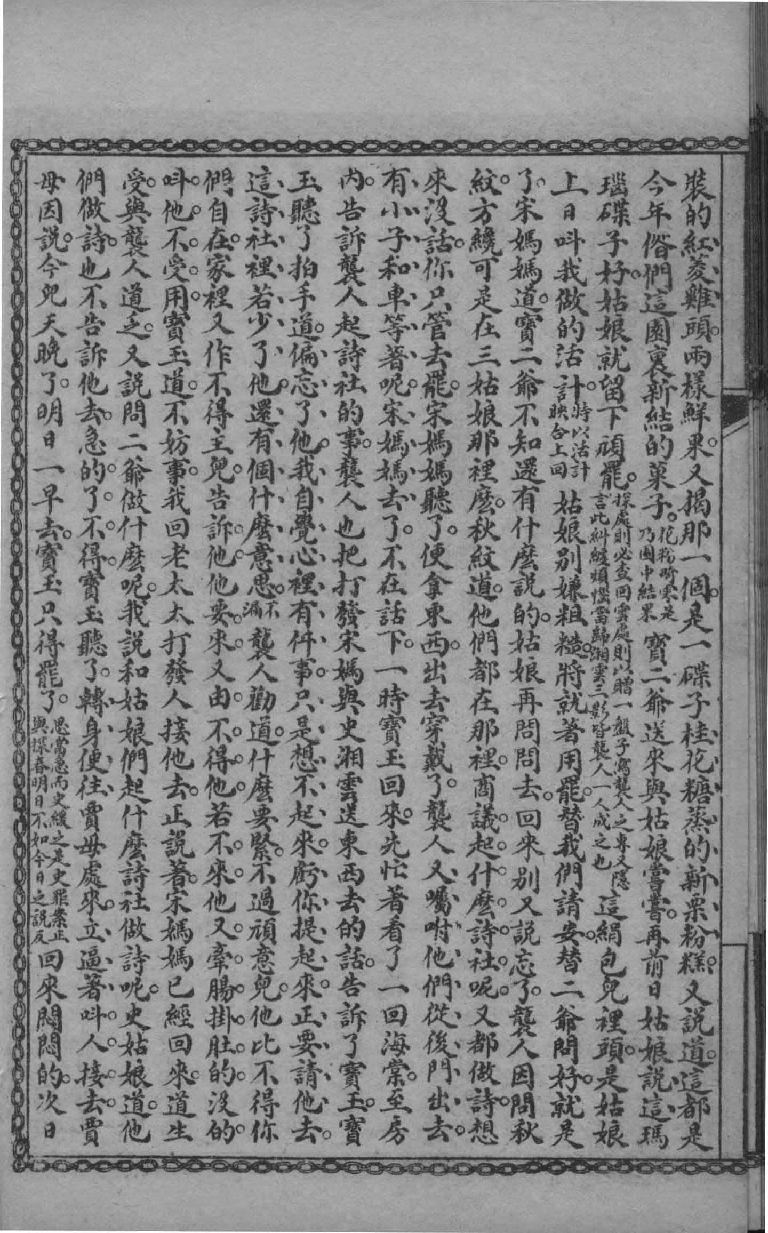 裝的紅菱雞頭兩樣鮮果又揭那一個是一碟子桂花糖蒸的新栗粉糕又說道這都是
今年偺們這園裏新結的菓子花粉吟雲是乃園中結果寶二爺送來與姑娘嘗嘗再前日姑娘說這瑪
瑙碟子好姑娘就留下頑罷探處則必查回雲處則以贈一盤子寫襲人之專又隱言此糾纏煩惱當歸湘雲三影皆襲人一人成之也這絹包兒裡頭是姑娘
上日呌我做的活計特以活計映合上回姑娘別嫌粗糙將就著用罷替我們請安替二爺問好就是
了宋媽媽道寶二爺不知還有什麽說的姑娘再問問去回來別又說忘了襲人因問秋
紋方纔可是在三姑娘那裡麽秋紋道他們都在那裡商議起什麽詩社呢又都做詩想
來沒話你只管去罷宋媽媽聽了便拿東西出去穿戴了襲人又囑咐他們從後門出去
有小子和車等著呢宋媽媽去了不在話下一時寶玉回來先忙著看了一回海棠至房
內告訴襲人起詩社的事襲人也把打發宋媽與史湘雲送東西去的話告訴了寶玉寶
玉聽了拍手道偏忘了他我自覺心裡有件事只是想不起來虧你提起來正要請他去
這詩社裡若少了他還有個什麽意思不漏襲人勸道什麽要緊不過頑意兒他比不得你
們自在家裡又作不得主兒告訴他他要來又由不得他若不來他又牽腸掛肚的沒的
呌他不受用寶玉道不妨事我回老太太打發人接他去正說著宋媽媽已經回來道生
受與襲人道乏又說問二爺做什麽呢我說和姑娘們起什麽詩社做詩呢史姑娘道他
們做詩也不告訴他去急的了不得寶玉聽了轉身便往賈母處來立逼著呌人接去賈
母因說今兒天晚了明日一早去寶玉只得罷了思當急而史緩之是史罪案正與探春明日不如今日之說反回來悶悶的次日